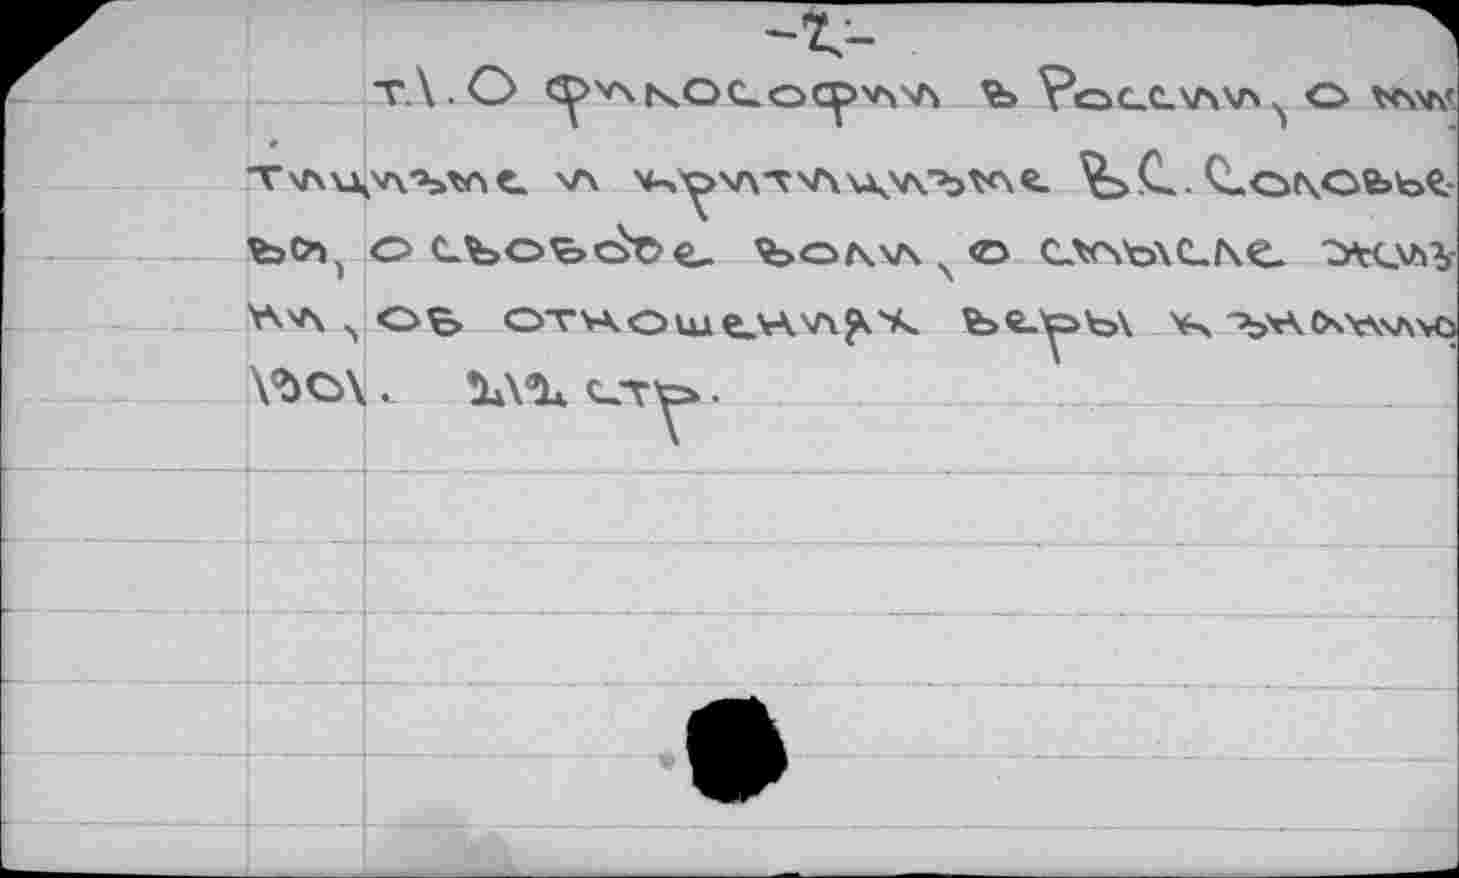 -2-
т.1. О философии в России, о мис-
тицизме и критицизме В.С. Соловье-
ва, о свободе воли, о смысле жиз-
ни, об отношениях веры к знанию
1901. 212 стр.